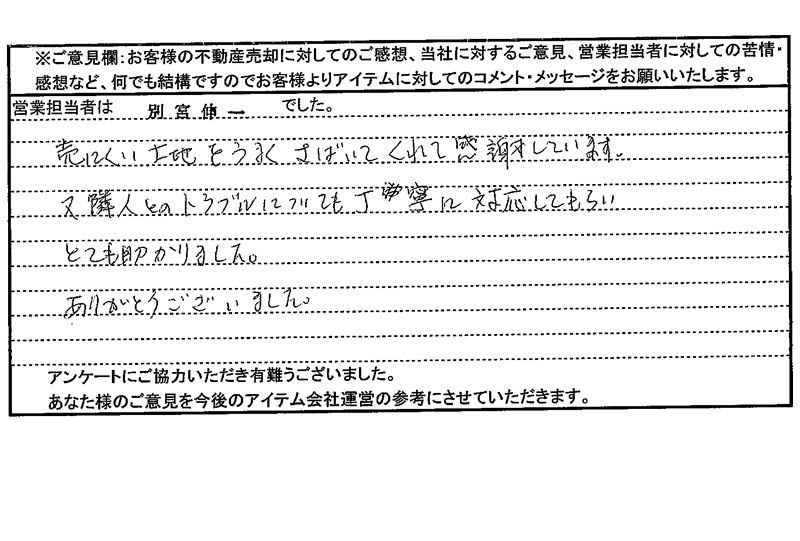 ※ご意見欄：お客様の不動産売却に対してのご感想、当社に対するご意見、営業担当者に対しての苦情・
感想など、何でも結構ですのでお客様よりアイテムに対してのコメント・メッセージをお願いいたします。
営業担当者は 別宮伸一 でした。
売にくい土地をうまくさばいてくれて感謝しています。
又隣人とのトラブルについても丁寧に対応してもらい
とても助かりました。
ありがとうございました。
アンケートにご協力いただき有難うございました。
あなた様のご意見を今後のアイテム会社運営の参考にさせていただきます。